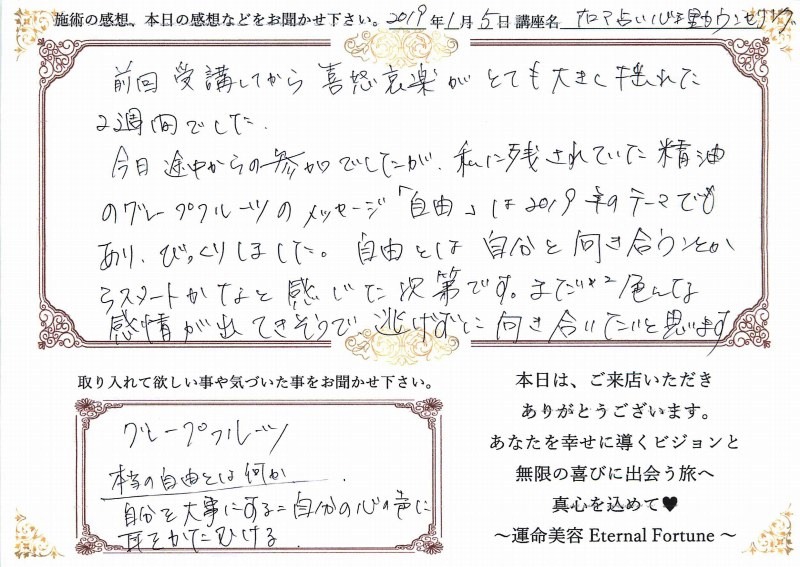 施術の感想、本日の感想などをお聞かせ下さい。2019年1月5日 講座名 アロマ占い心理カウンセリング
前回受講してから喜怒哀楽がとても大きく揺れた
2週間でした.
今日途中からの参加でしたが、私に残されていた精油
のグレープフルーツのメッセージ「自由」は2019年のテーマでも
あり、びっくりしました。自由とは自分と向き合うことか
らスタートかなと感じた次第です。まだまだ色んな
感情が出てきそうで、逃げずに向き合いたいと思います
取り入れて欲しい事や気づいた事をお聞かせ下さい。
グレープフルーツ
本当の自由とは何か
自分を大事にする=自分の心の声に
耳をかたむける
本日は、ご来店いただき
ありがとうございます。
あなたを幸せに導くビジョンと
無限の喜びに出会う旅へ
真心を込めて♥
～運命美容 Eternal Fortune～